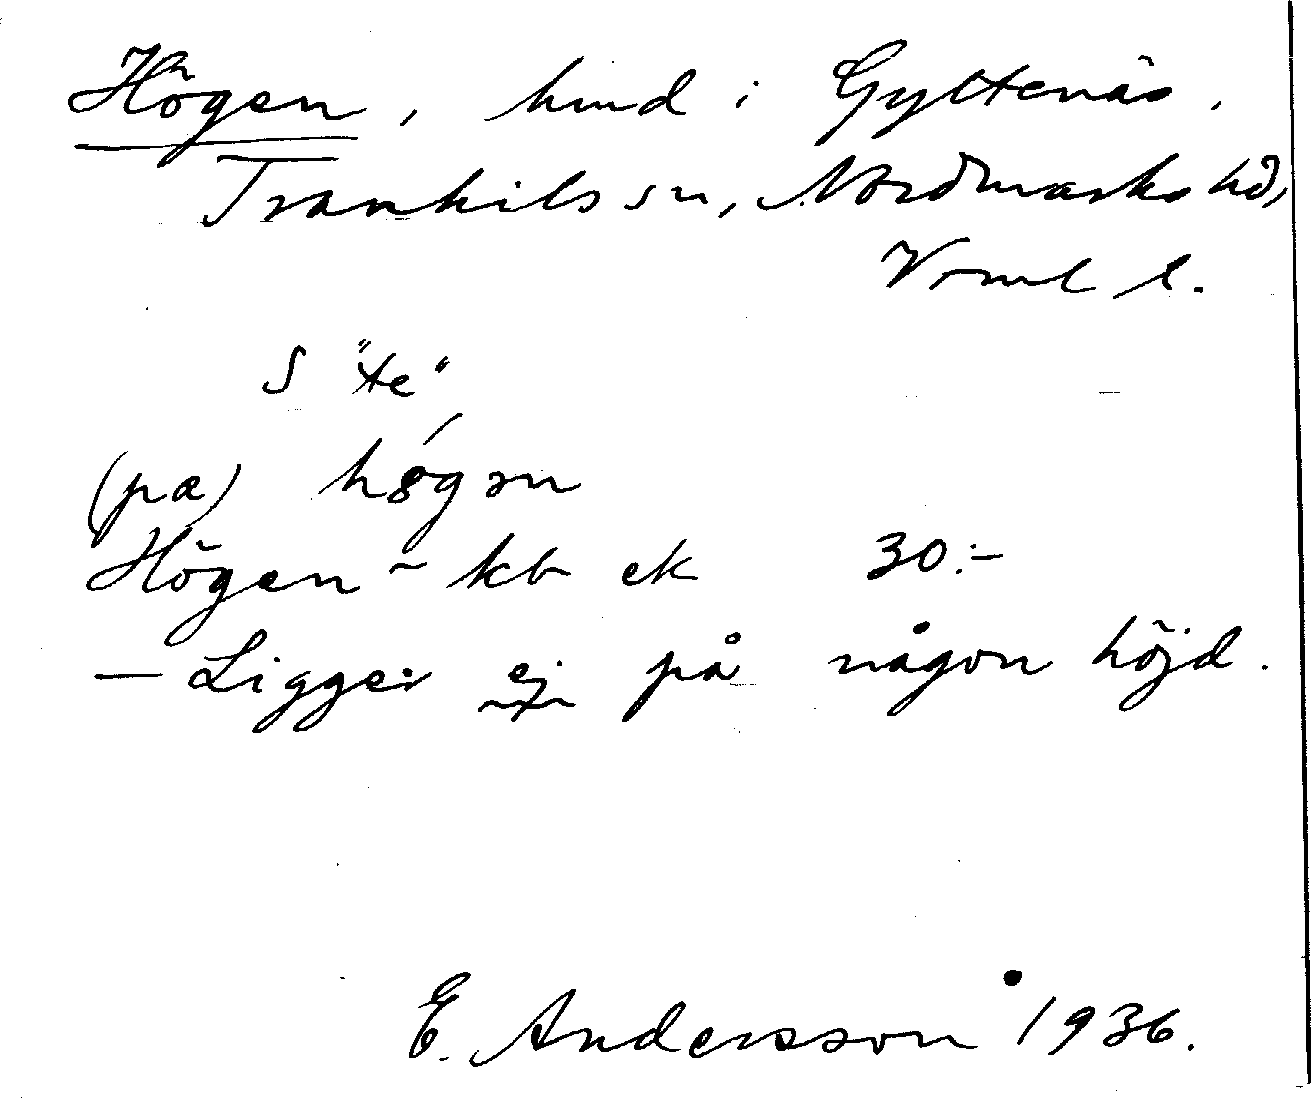 Högen, hmd i Gyltenäs,
Trankils sn, Nordmarks hd,
Vrml l.
S "te"
(pæ) høgən
Högen ~ kb ek 30:-
— Ligger ej på någon höjd.
E. Andersson 1936.